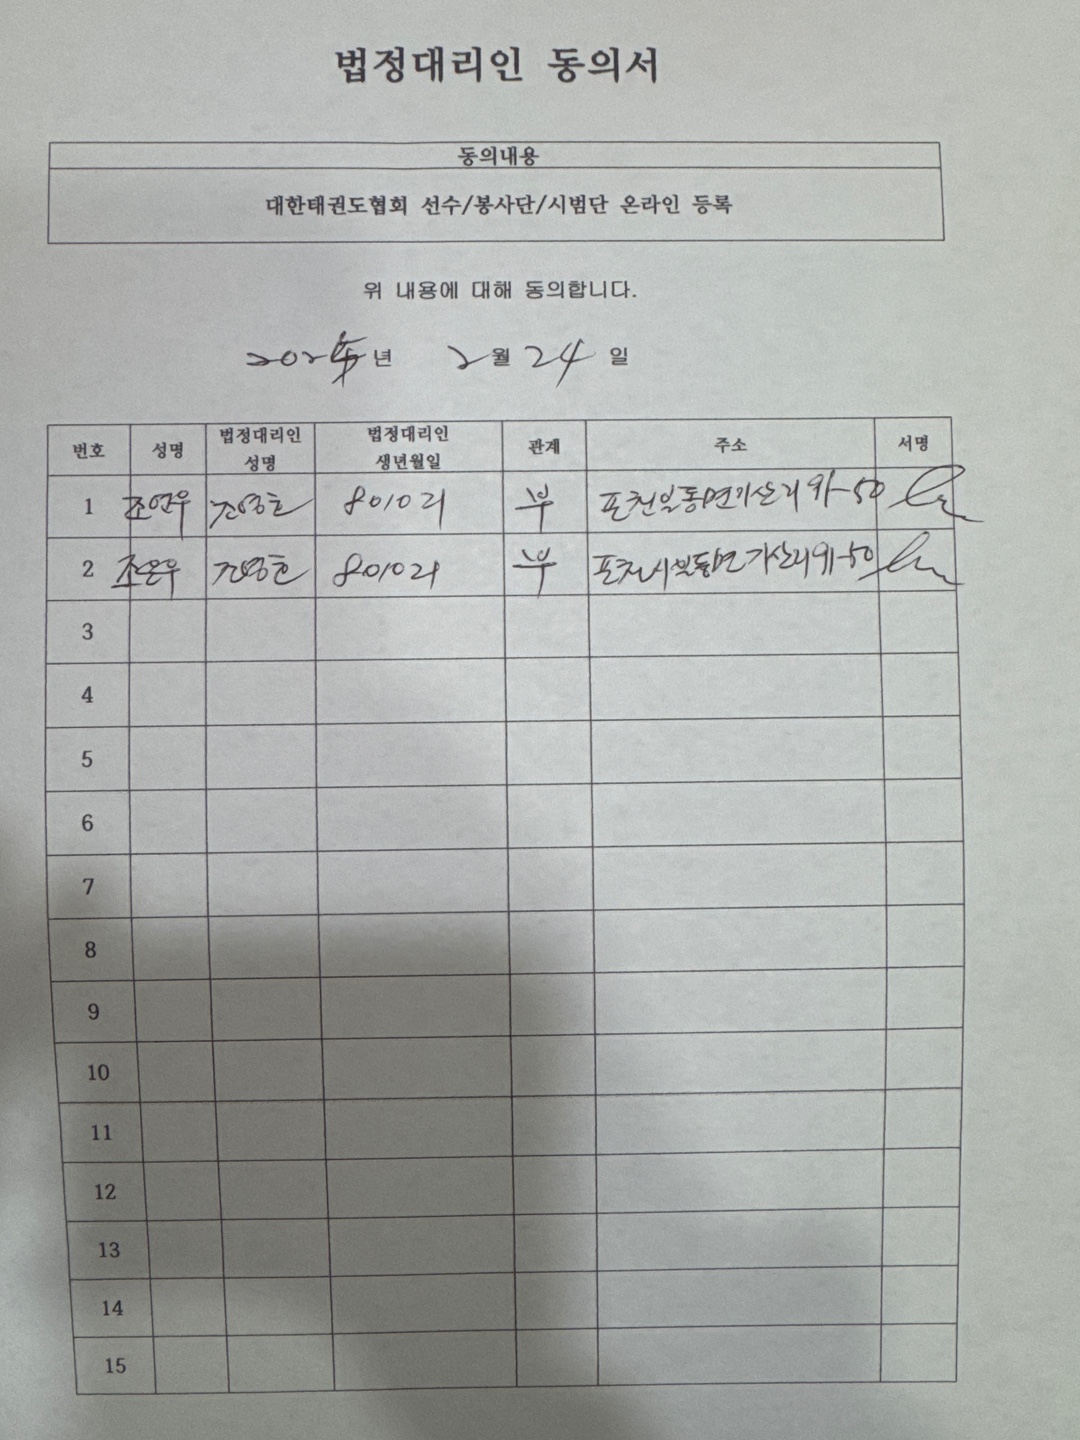 법정대리인 동의서
동의내용
대한태권도협회 선수/봉사단/시범단 온라인 등록
위 내용에 대해 동의합니다.
년 2월 24일
번호 성명 법정대리인 성명 법정대리인 생년월일 관계 주소 서명
1 조연우 조영호 801021 부 포천일동면기산리 91-50
2 조은우 조영호 801021 부 포천시일동면 기산리 91-50
3
4
5
6
7
8
9
10
11
12
13
14
15